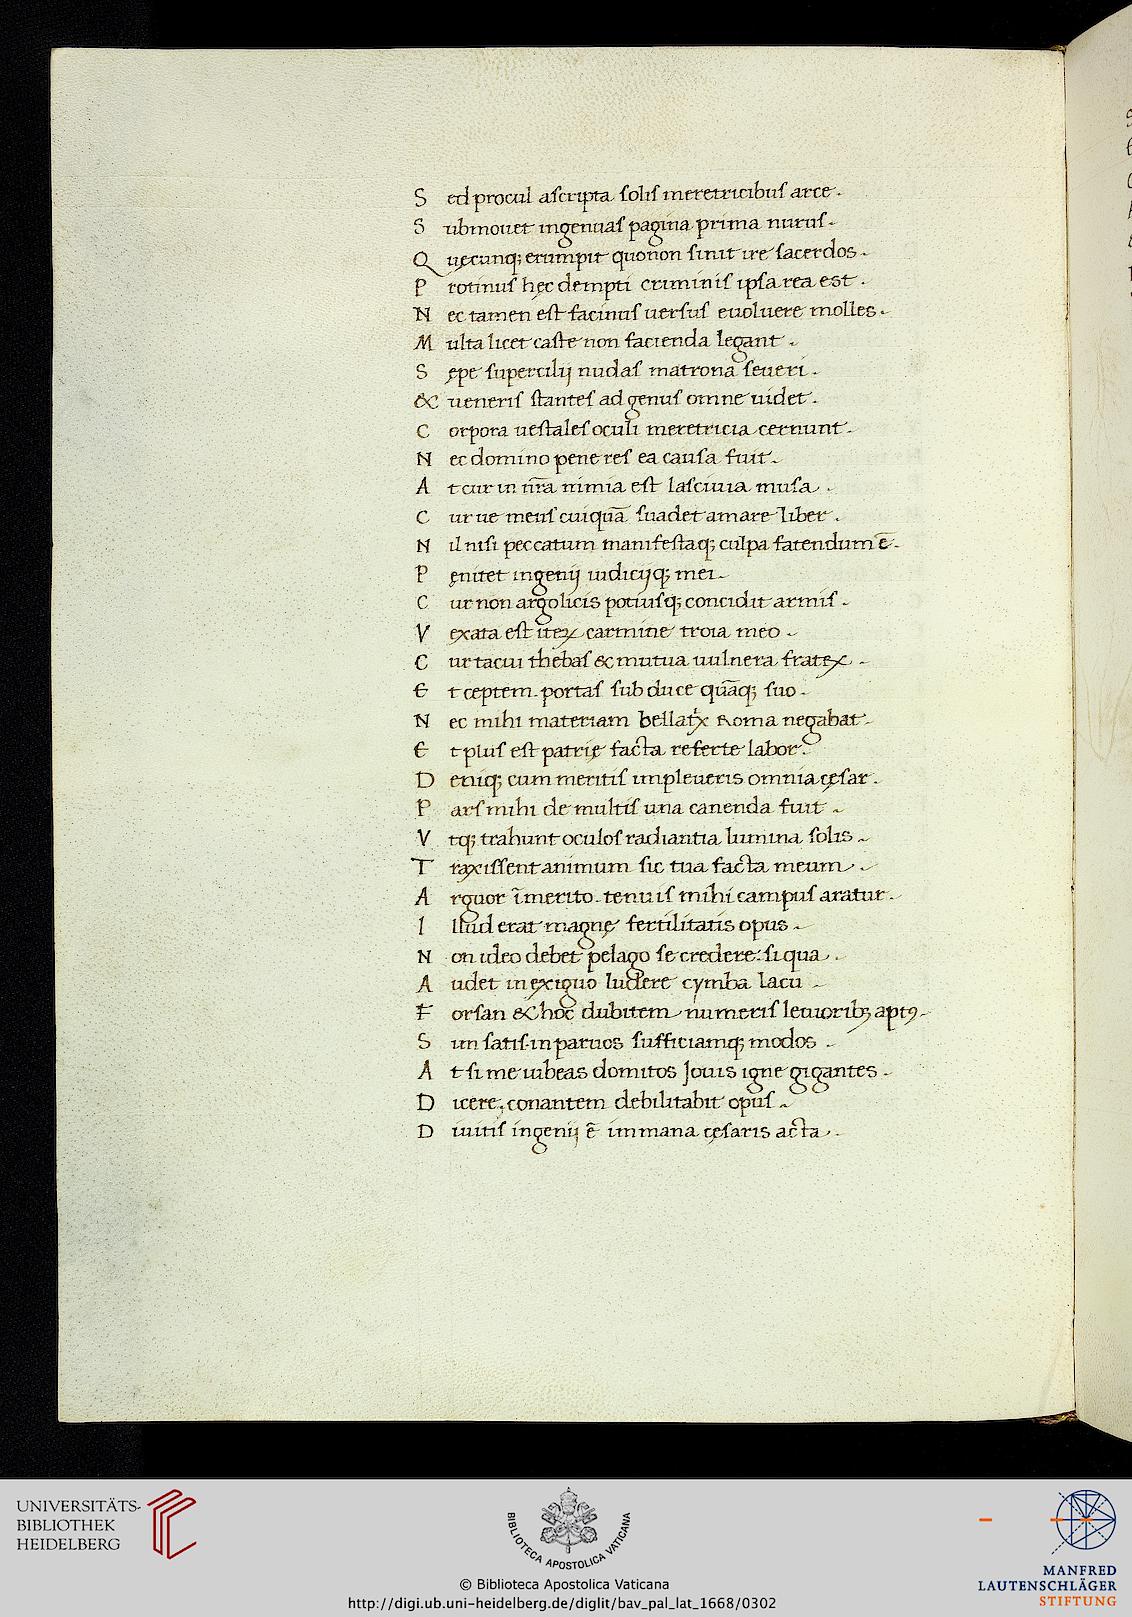 S ed procul ascripta solis meretricibus arce.
S ubmouet ingenuas pagina prima nurus.
Q uęcunq; erumpit quo non sinit ire sacerdos.
P rotinus hęc dempti criminis ipsa rea est.
N ec tamen est facinus uersus euoluere molles.
M ulta licet caste non facienda legant.
S ępe supercilij nudas matrona seueri.
& ueneris stantes ad genus omne uidet.
C orpora uestales oculi meretricia cernunt.
N ec domino pene res ea causa fuit.
A t cur in nr̄a nimia est lasciuia musa.
C ur ue meus cuiquā suadet amare liber.
N il nisi peccatum manifestaq; culpa fatendum ē.
P ęnitet ingenij iudicijq; mei.
C ur non argolicis potiusq; concidit armis.
V exata est iteꝝ carmine troia meo.
C ur tacui thebas & mutua uulnera fratꝝ.
E t ceptem. portas sub duce quāq; suo.
N ec mihi materiam bellatͥx Roma negabat.
E t plus est patrię facta referte labor.
D eniq; cum meritis impleueris omnia cęsar.
P ars mihi de multis una canenda fuit.
V tq; trahunt oculos radiantia lumina solis.
T raxissent animum sic tua facta meum.
A rguor īmerito. tenuis mihi campus aratur.
I llud erat magnę fertilitatis opus.
N on ideo debet pelago se credere: si qua.
A udet in exiguo ludere cymba lacu.
F orsan & hoc dubitem numeris leuioribꝫ aptꝰ.
S im satis. in paruos sufficiamq; modos.
A t si me iubeas domitos Jouis igne gigantes.
D icere. conantem debilitabit opus.
D iuitis ingenij ē immana cęsaris acta.
UNIVERSITÄTS-
BIBLIOTHEK
HEIDELBERG
BIBLIOTECA APOSTOLICA VATICANA
MANFRED
LAUTENSCHLÄGER
STIFTUNG
© Biblioteca Apostolica Vaticana
http://digi.ub.uni-heidelberg.de/diglit/bav_pal_lat_1668/0302